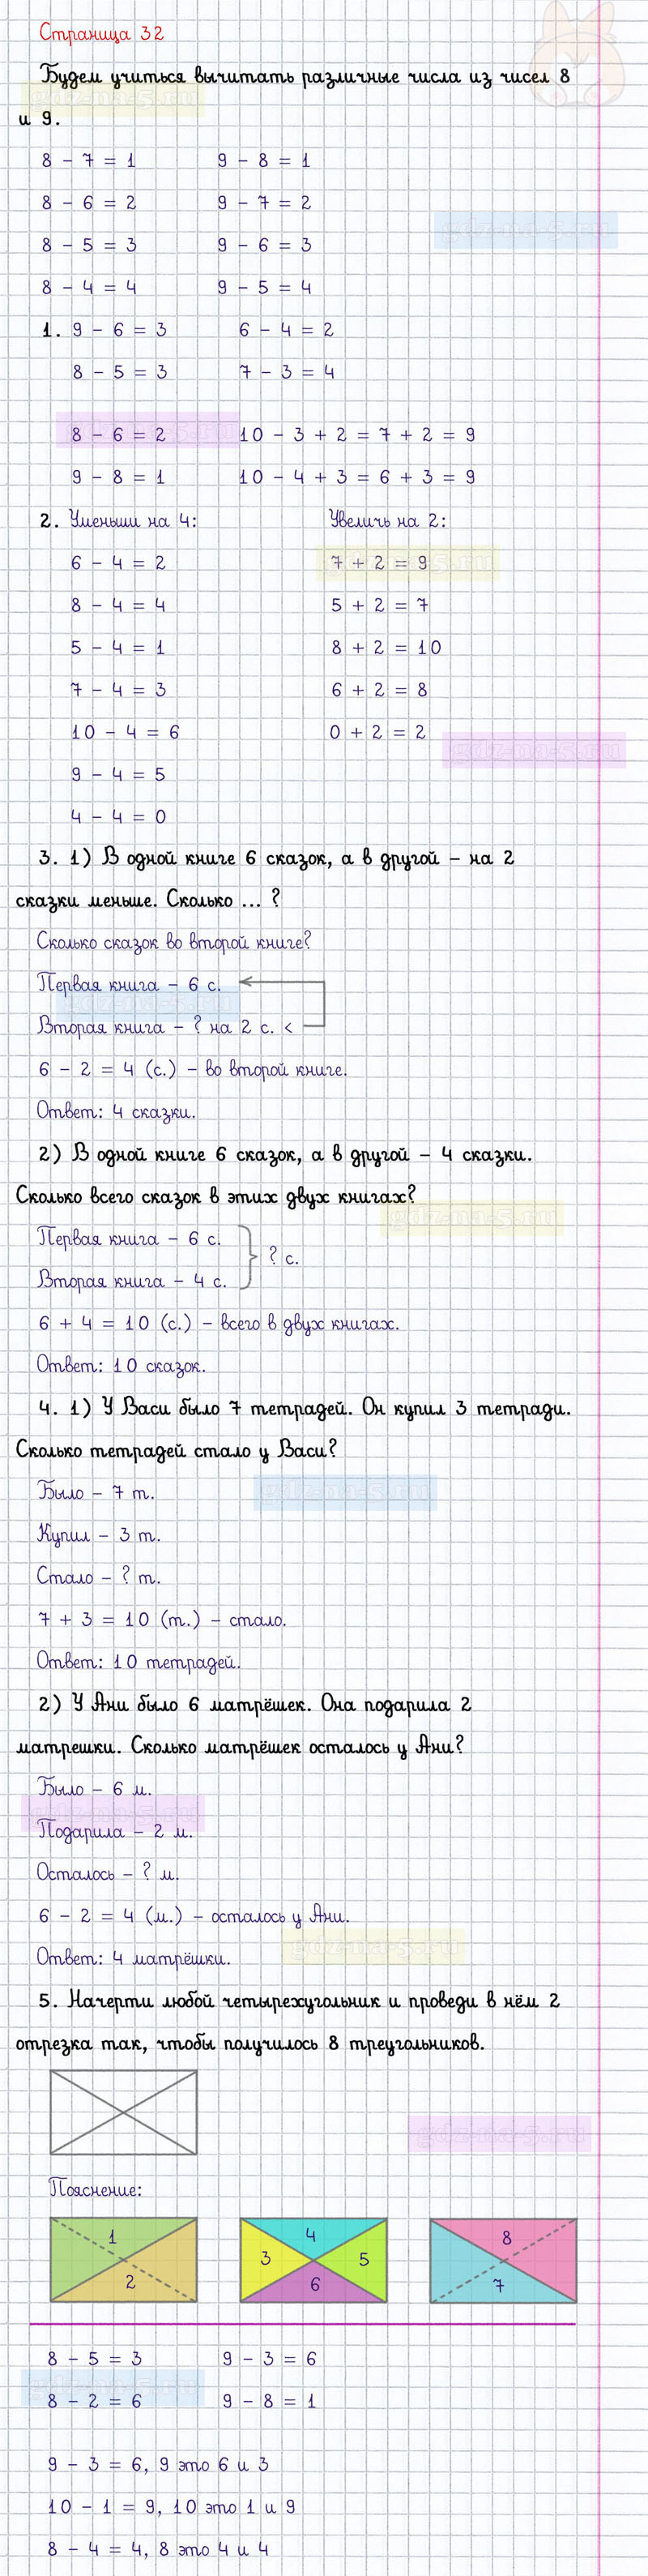 Страница 32
Будем учиться вычитать различные числа из чисел 8
и 9.
8 - 7 = 1 9 - 8 = 1
8 - 6 = 2 9 - 7 = 2
8 - 5 = 3 9 - 6 = 3
8 - 4 = 4 9 - 5 = 4
1. 9 - 6 = 3 6 - 4 = 2
8 - 5 = 3 7 - 3 = 4
8 - 6 = 2 10 - 3 + 2 = 7 + 2 = 9
9 - 8 = 1 10 - 4 + 3 = 6 + 3 = 9
2. Уменьши на 4: Увеличь на 2:
6 - 4 = 2 7 + 2 = 9
8 - 4 = 4 5 + 2 = 7
5 - 4 = 1 8 + 2 = 10
7 - 4 = 3 6 + 2 = 8
10 - 4 = 6 0 + 2 = 2
9 - 4 = 5
4 - 4 = 0
3. 1) В одной книге 6 сказок, а в другой - на 2
сказки меньше. Сколько ... ?
Сколько сказок во второй книге?
Первая книга - 6 с.
Вторая книга - ? на 2 с. <
6 - 2 = 4 (с.) - во второй книге.
Ответ: 4 сказки.
2) В одной книге 6 сказок, а в другой - 4 сказки.
Сколько всего сказок в этих двух книгах?
Первая книга - 6 с.
? с.
Вторая книга - 4 с.
6 + 4 = 10 (с.) - всего в двух книгах.
Ответ: 10 сказок.
4. 1) У Васи было 7 тетрадей. Он купил 3 тетради.
Сколько тетрадей стало у Васи?
Было - 7 т.
Купил - 3 т.
Стало - ? т.
7 + 3 = 10 (т.) - стало.
Ответ: 10 тетрадей.
2) У Ани было 6 матрёшек. Она подарила 2
матрешки. Сколько матрёшек осталось у Ани?
Было - 6 м.
Подарила - 2 м.
Осталось - ? м.
6 - 2 = 4 (м.) - осталось у Ани.
Ответ: 4 матрёшки.
5. Начерти любой четырехугольник и проведи в нём 2
отрезка так, чтобы получилось 8 треугольников.
Пояснение:
1 4 8
3 5
2 6 7
8 - 5 = 3 9 - 3 = 6
8 - 2 = 6 9 - 8 = 1
9 - 3 = 6, 9 это 6 и 3
10 - 1 = 9, 10 это 1 и 9
8 - 4 = 4, 8 это 4 и 4
gdz-na-5.ru
gdz-na-5.ru
gdz-na-5.ru
gdz-na-5.ru
gdz-na-5.ru
gdz-na-5.ru
gdz-na-5.ru
gdz-na-5.ru
gdz-na-5.ru
gdz-na-5.ru
gdz-na-5.ru
gdz-na-5.ru